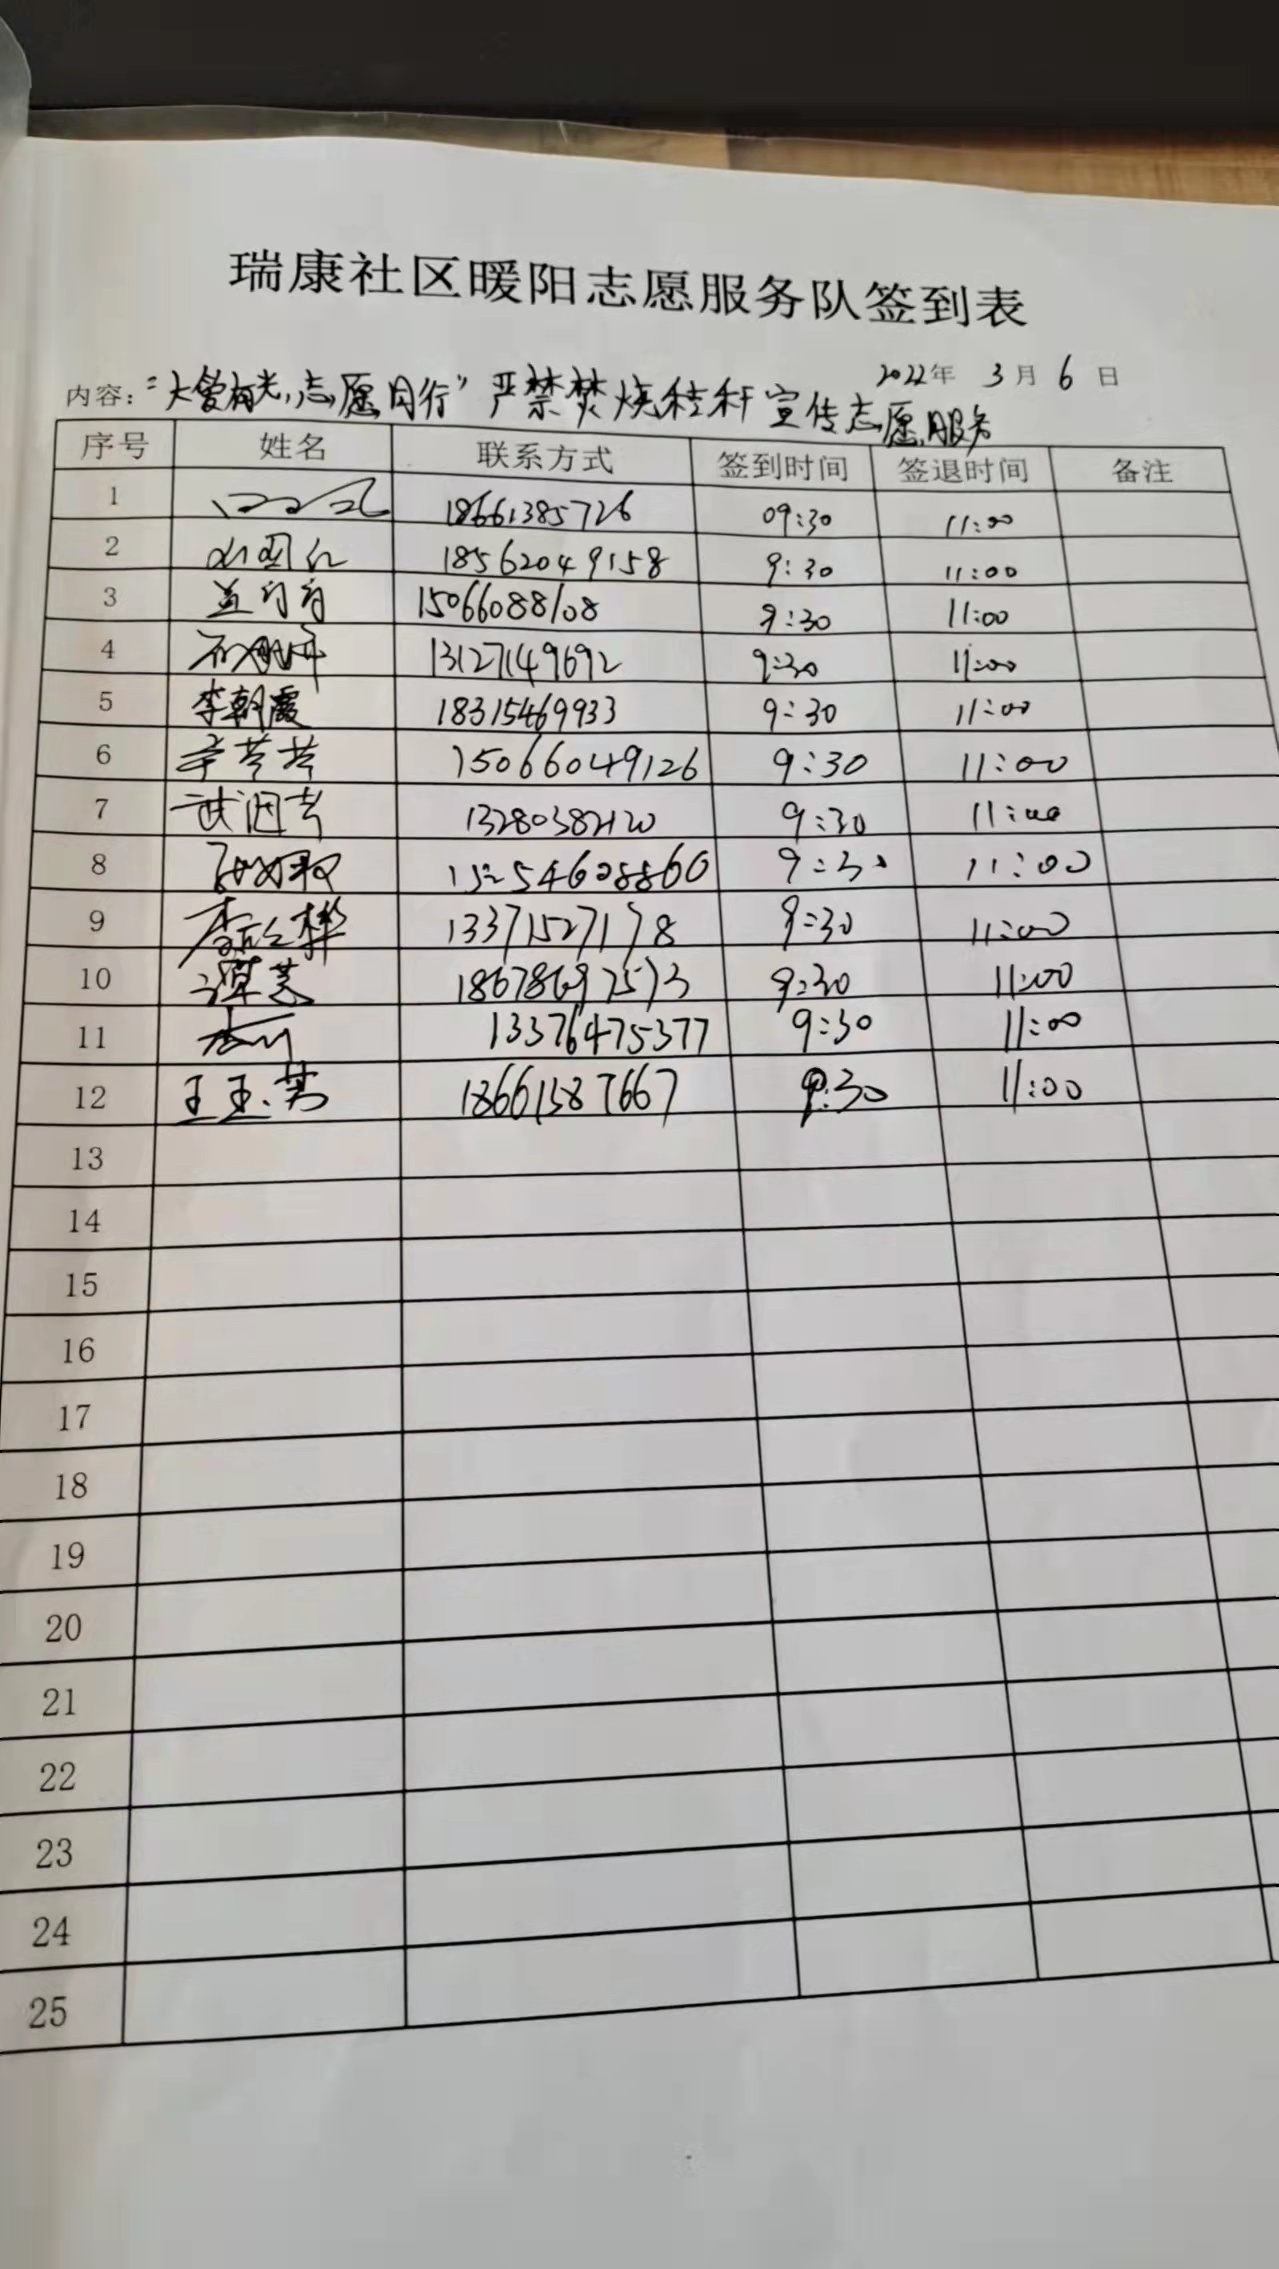 瑞康社区暖阳志愿服务队签到表
2022年 3月 6日
内容："大爱有光,志愿同行"严禁焚烧秸秆宣传志愿服务
序号 姓名 联系方式 签到时间 签退时间 备注
1 18661385726 09:30 11:00
2 18562049158 9:30 11:00
3 15066088108 9:30 11:00
4 13127149692 9:30 11:00
5 李朝霞 18315469933 9:30 11:00
6 15066049126 9:30 11:00
7 13280382120 9:30 11:00
8 15254608860 9:30 11:00
9 13371527178 9:30 11:00
10 谭芸 18678697573 9:30 11:00
11 13376475377 9:30 11:00
12 18661587667 9:30 11:00
13
14
15
16
17
18
19
20
21
22
23
24
25